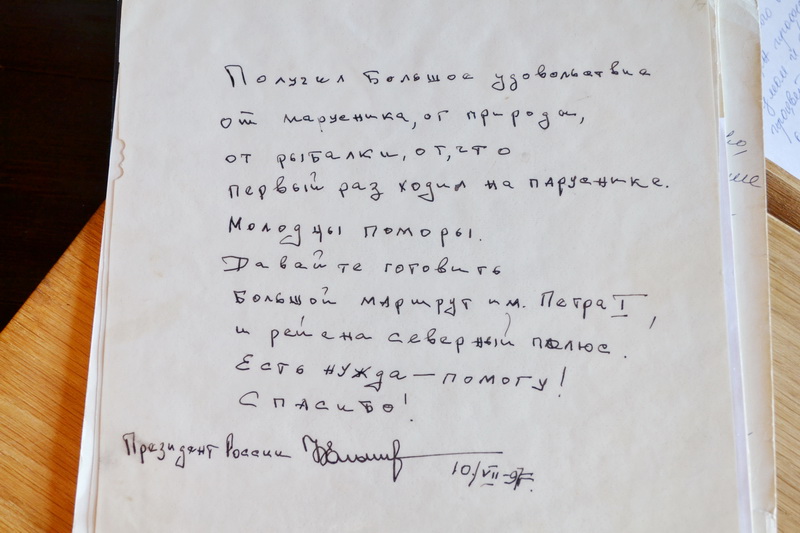 Получил Большое удовольствие
от парусника, от природы,
от рыбалки, от, что
первый раз ходил на паруснике.
Молодцы поморы.
Давайте готовить
Большой маршрут им. Петра I,
и рейс на северный полюс.
Есть нужда — помогу!
Спасибо!
Президент России Б Ельцин
10/VII-97г.